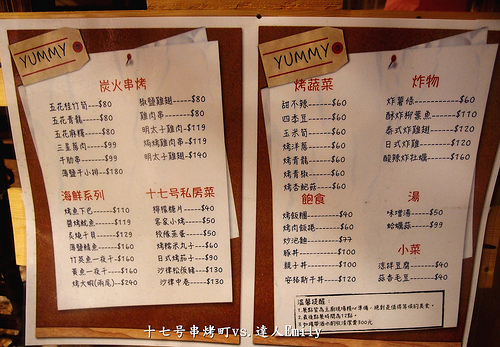 YUMMY
炭火串烤
五花怪竹筍---$80
五花青龍----$80
五花麻糬----$80
三星蔥肉----$99
牛肋串-----$99
薄鹽牛小排--$180
椒鹽雞翅----$80
雞肉串-----$80
明太子雞肉-$119
焗烤雞肉--$119
明太子雞翅-$140
海鮮系列
烤魚下巴-----$110
醬烤魷魚-----$119
炙燒干貝-----$129
薄鹽鯖魚-----$160
竹筴魚一夜干---$160
黃魚一夜干----$160
烤大蝦(兩尾)--$240
十七号私房菜
檸檬糖片----$40
客家小烤----$50
皎條蒸蛋----$50
烤糯米丸子---$60
日式烤蒜----$90
沙律松阪豬---$130
沙律中卷----$130
YUMMY
烤蔬菜
甜不辣-----$60
四季豆-----$60
玉米筍-----$60
烤洋蔥-----$60
烤青龍-----$60
烤青椒-----$60
烤杏鮑菇----$60
飽食
烤飯糰-------$40
烤肉飯捲-----$60
炒泡麵------$77
豚丼-------$100
親子丼------$100
安格斯牛丼----$120
炸物
炸薯條------$60
酥炸柳葉魚---$110
泰式炸雞翅---$120
日式炸雞----$120
酸辣炸牡蠣---$160
湯
味噌湯-----$50
蛤蠣菇-----$99
小菜
涼拌豆腐----$40
蒜香毛豆----$40
溫馨提醒：
2.最後點餐時間為12點。
十七号串烤町vs.達人Emily